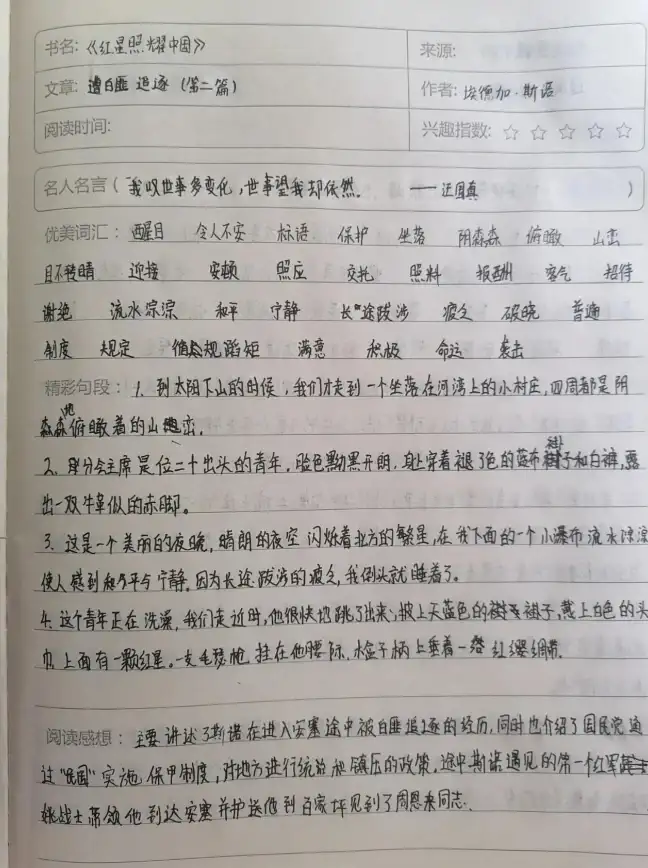 书名:《红星照耀中国》 来源:
文章: 遭白匪追逐(第二篇) 作者: 埃德加·斯诺
阅读时间: 兴趣指数: ☆ ☆ ☆ ☆ ☆
名人名言( "我叹世事多变化,世事望我却依然。 ——汪国真 )
优美词汇: 醒目 令人不安 标语 保护 坐落 阴森森 俯瞰 山峦
目不转睛 迎接 安顿 照应 交托 照料 报酬 客气 招待
谢绝 流水淙淙 和平 宁静 长途跋涉 疲乏 破晓 普遍
制度 规定 循规蹈矩 满意 积极 命运 袭击
精彩句段: 1. 到太阳下山的时候,我们才走到一个坐落在河湾上的小村庄,四周都是阴
森森地俯瞰着的山峦.
2. 分会主席是位二十出头的青年,脸色黝黑开朗,身上穿着褪了色的蓝布褂子和白裤,露
出一双牛革似的赤脚。
3. 这是一个美丽的夜晚,晴朗的夜空闪烁着北方的繁星,在我下面的一个小瀑布流水淙淙
使人感到和平与宁静.因为长途跋涉的疲乏,我倒头就睡着了。
4. 这个青年正在洗澡,我们走近时,他很快地跳了出来,披上天蓝色的褂子,戴上白色的头
巾,上面有一颗红星。一支毛瑟枪挂在他腰际,木盒子柄上垂着一绺红缨绸带.
阅读感想: 主要讲述了斯诺在进入安塞途中被白匪追逐的经历,同时也介绍了国民党通
过"民团"实施保甲制度,对地方进行统治和镇压的政策,途中斯诺遇见的第一个红军
战士带领他到达安塞并护送他到百家坪见到了周恩来同志.